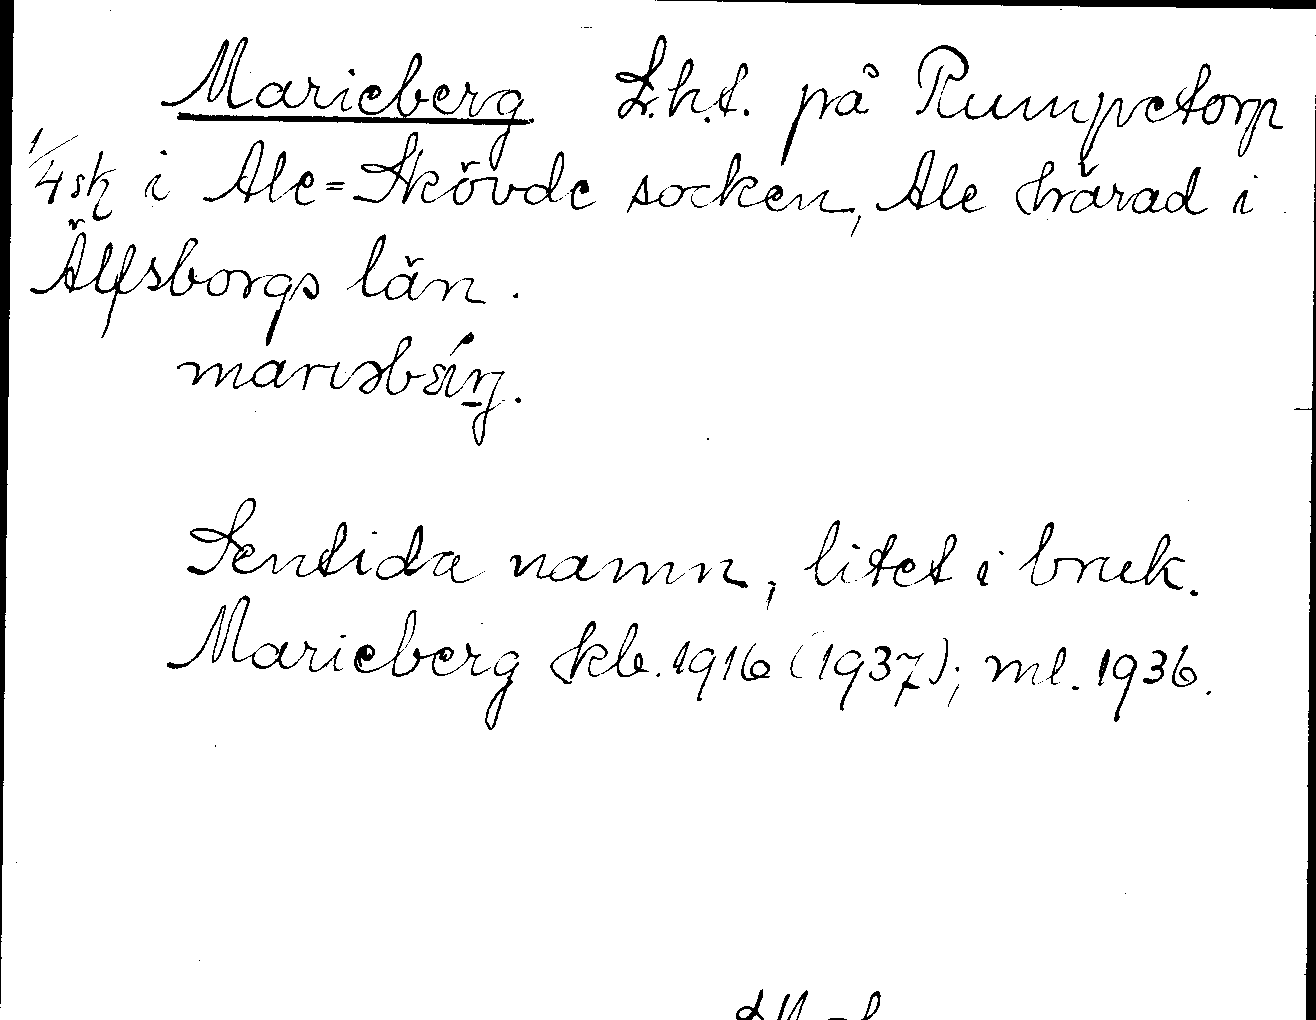 Marieberg L.h.t. på Rumpetorp
1/4 sk i Ale=Skövde socken, Ale härad i
Älfsborgs län.
Sentida namn, litet i bruk.
Marieberg kb. 1916 (1937); ml. 1936.